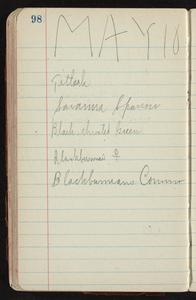 98
MAY 10
Titlark
Savanna Sparrow
Black throated Green
Blackburnian ♀
Blackburnians Common